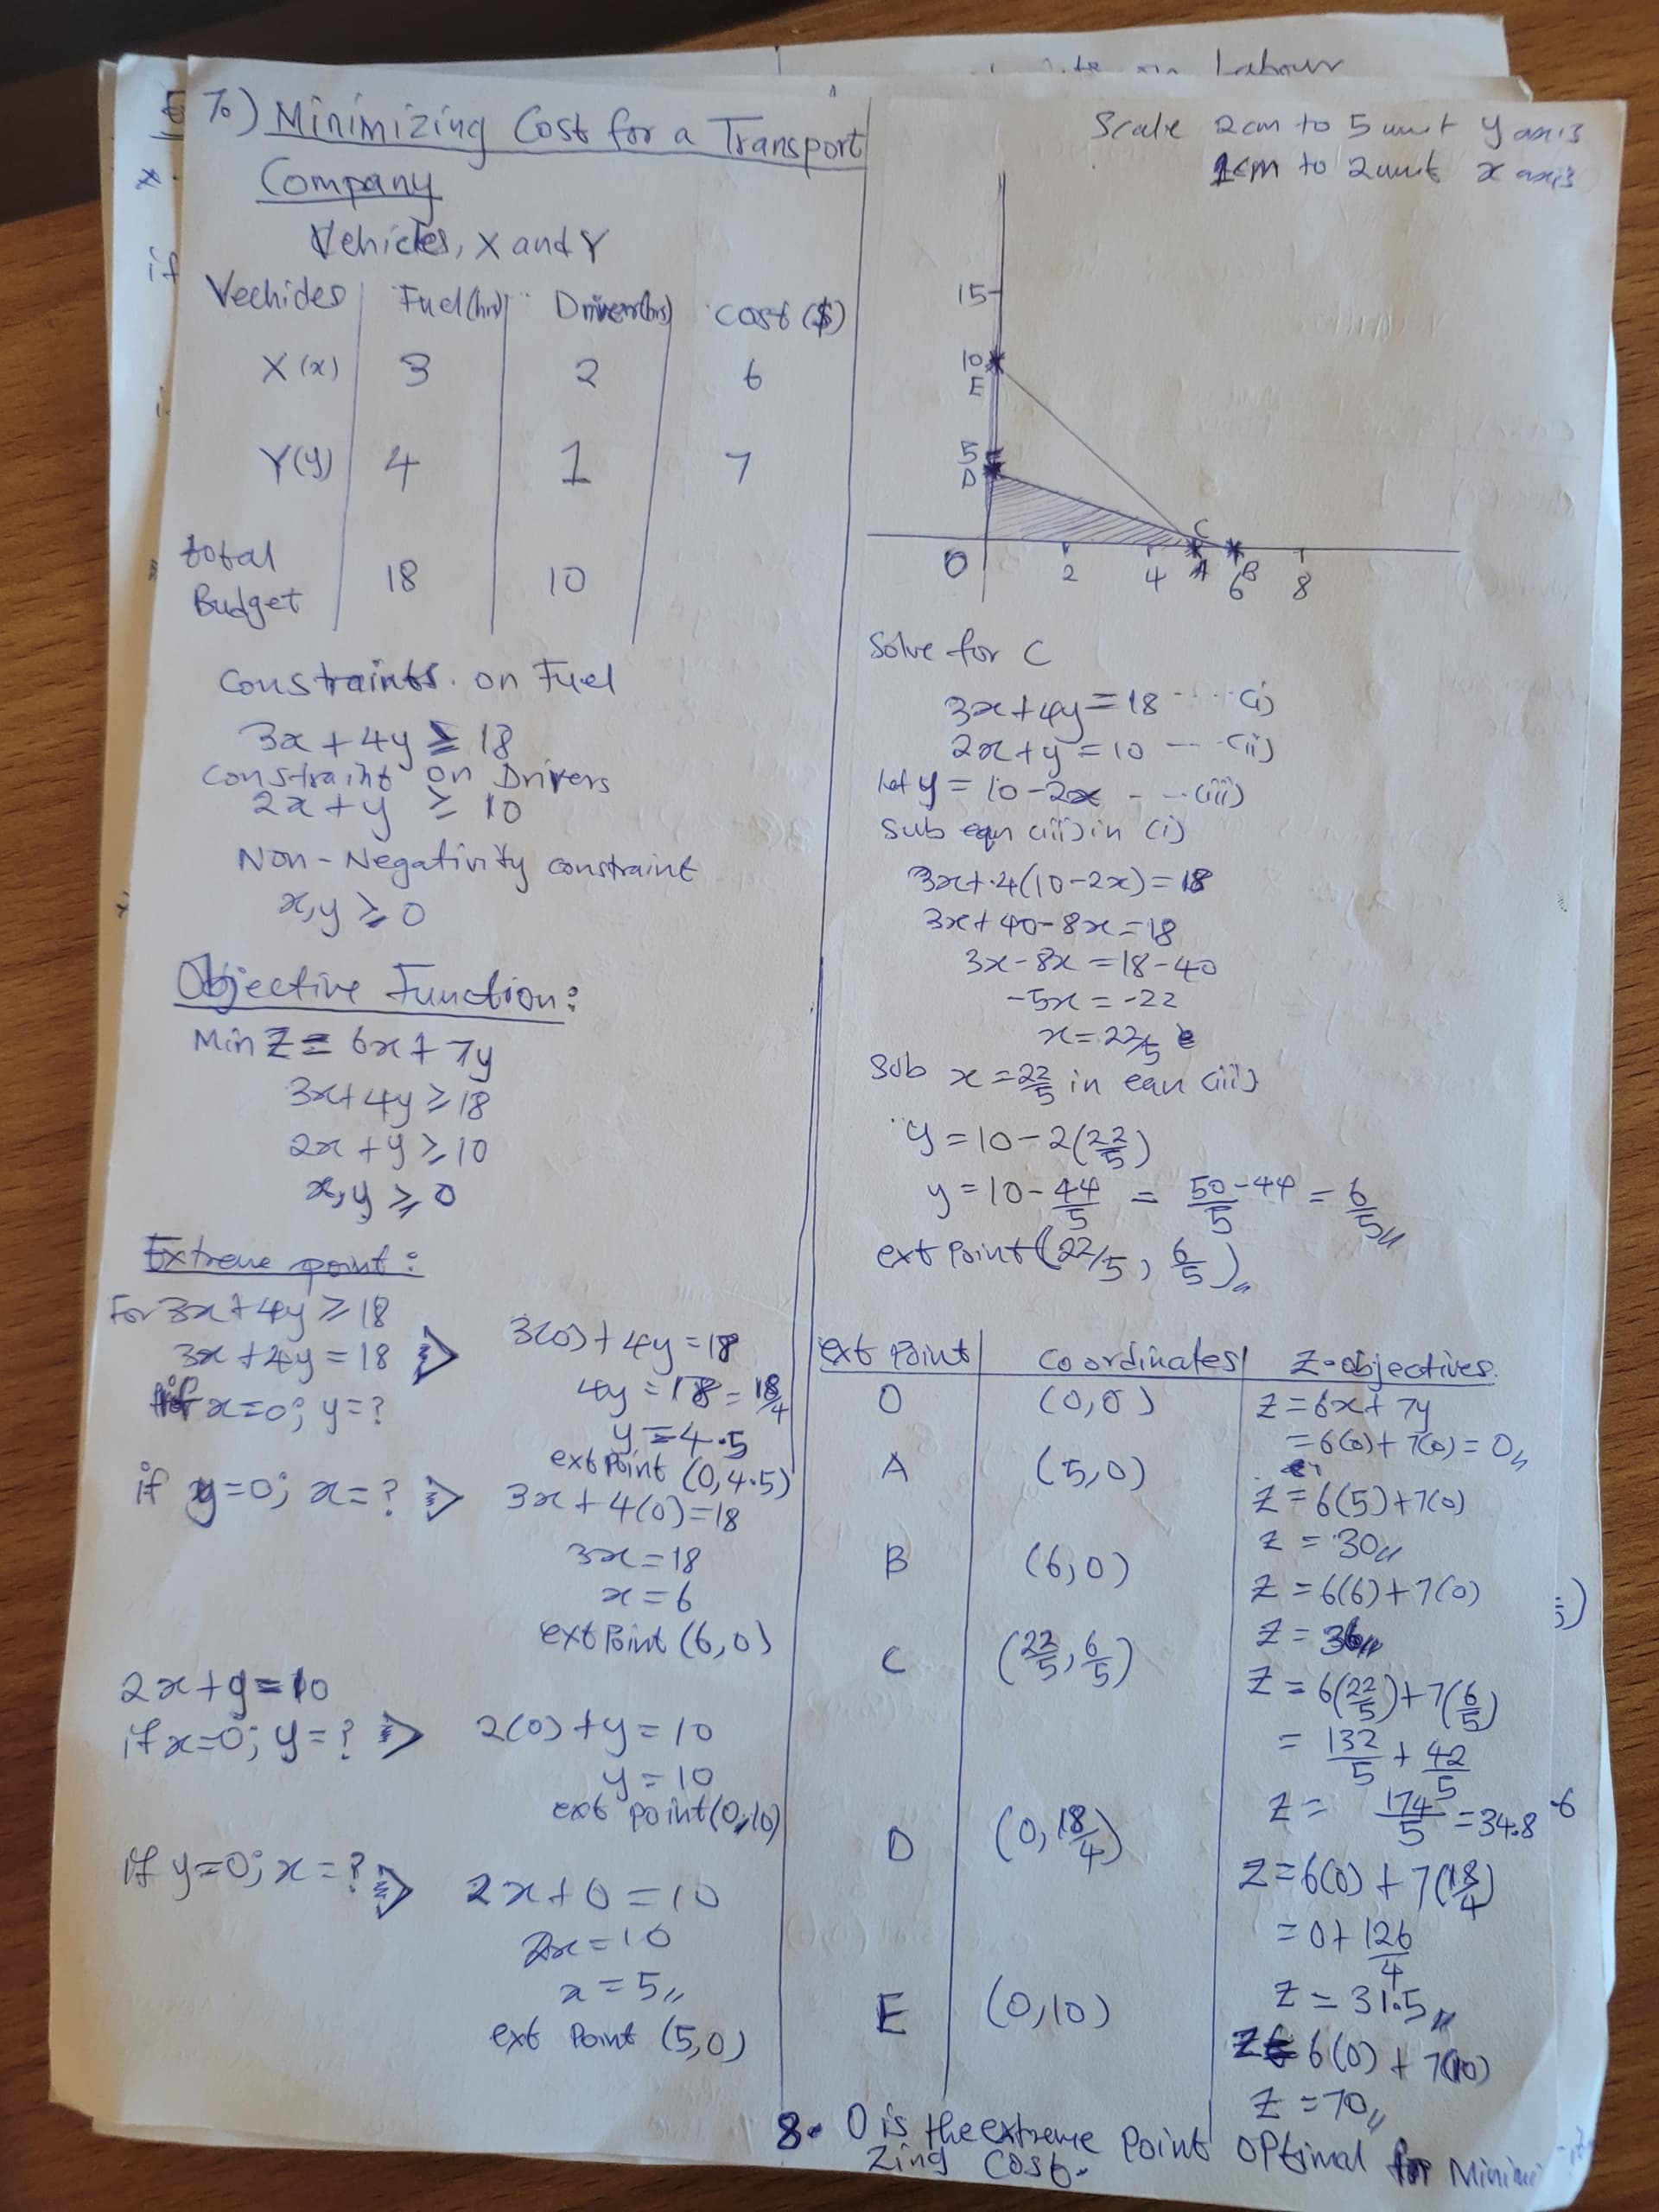 Labour
7.) Minimizing Cost for a Transport
Company
Vehicles, X and Y
Vechides Fuel(hr) Drivers(hrs) Cost ($)
X(x) 3 2 6
Y(y) 4 1 7
total
Budget 18 10
Constraints. on Fuel
3x + 4y ≥ 18
Constraint on Drivers
2x + y ≥ 10
Non-Negativity constraint
x,y ≥ 0
Objective Function:
Min Z = 6x + 7y
3x + 4y ≥ 18
2x + y ≥ 10
x,y ≥ 0
Extreme point:
For 3x + 4y ≥ 18
3x + 4y = 18
if x=0; y=?
3(0) + 4y = 18
4y = 18 = 18/4
y = 4.5
ext Point (0,4.5)
if y=0; x=?
3x + 4(0) = 18
3x = 18
x = 6
ext Point (6,0)
2x + y = 10
if x=0; y=?
2(0) + y = 10
y = 10
ext point (0,10)
if y=0; x=?
2x + 0 = 10
2x = 10
x = 5,,
ext Point (5,0)
Scale 2cm to 5 unit y axis
1cm to 2 unit x axis
15
10
E
5
D
C
0 2 4 A 6 B 8
Solve for C
3x + 4y = 18 ---- (i)
2x + y = 10 --- (ii)
let y = 10 - 2x - -- (iii)
Sub eqn (iii) in (i)
3x + 4(10-2x) = 18
3x + 40 - 8x = 18
3x - 8x = 18 - 40
-5x = -22
x = 22/5
Sub x = 22/5 in eqn (iii)
y = 10 - 2(22/5)
y = 10 - 44/5 = 50-44/5 = 6/5,,
ext Point (22/5, 6/5),,
ext Point Coordinates Z-objectives.
O (0,0) Z = 6x + 7y
= 6(0) + 7(0) = 0,,
A (5,0) Z = 6(5) + 7(0)
Z = 30,,
B (6,0) Z = 6(6) + 7(0)
Z = 36,,
C (22/5, 6/5) Z = 6(22/5) + 7(6/5)
= 132/5 + 42/5
Z = 174/5 = 34.8
D (0, 18/4) Z = 6(0) + 7(18/4)
= 0 + 126/4
Z = 31.5,,
E (0,10) Z = 6(0) + 7(10)
Z = 70,,
8. O is the extreme Point optimal for Minimi
zing Cost.